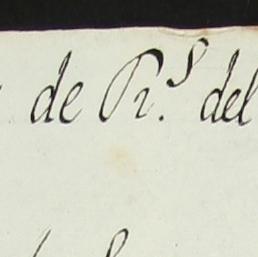 de Rs. del